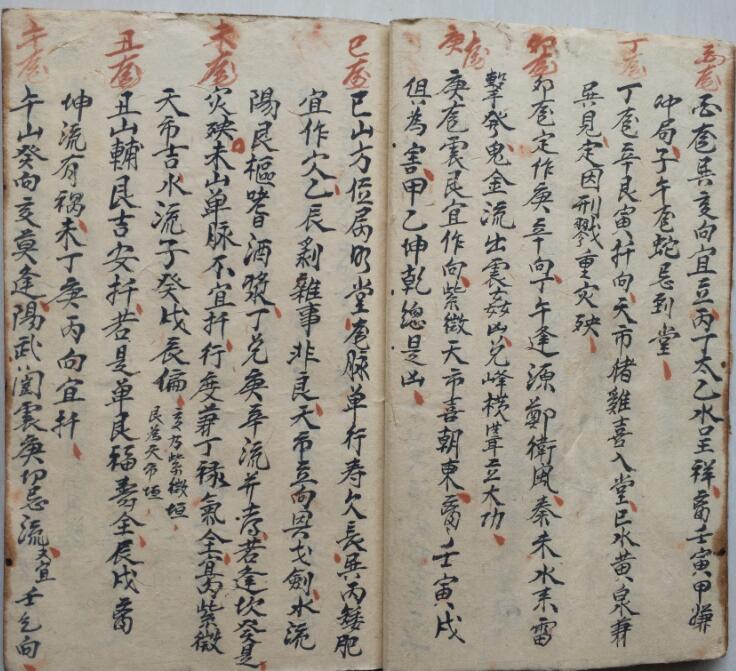 酉龍
酉龍巽亥向宜立丙丁太乙水呈祥畜壬寅甲嫌
冲局子午龍蛇忌到堂
丁龍
丁龍辛艮寅扦向天市猪雞喜入堂巳水黄泉兼
巽見定因刑戮重灾殃
卯龍
卯龍定作庚辛向丁午逢源鄭衛風秦未水来雷
擊發鬼金流出震姦凶兌峰橫聳立大功
庚龍
庚龍震艮宜作向紫微天市喜朝東畜壬寅戌
俱為害甲乙坤乾總是凶
巳龍
巳山方位属明堂龍脉单行寿久長巽丙矮肥
宜作穴乙辰剩雜事非良天市立向巽戈劍水流
陽艮樞嗜酒漿丁兌庚辛流并秀若逢坎癸是
未龍
灾殃未山单脉不宜扦行度兼丁禄氣全葛紫微
天市吉水流子癸戌辰偏
亥為紫微垣
艮為天市垣
丑龍
丑山輔艮吉安扦若是单艮福壽全辰戌畜
坤流有禍未丁庚丙向宜扦
午龍
午山癸向亥莫逢陽武闔震庚切忌流又宜壬乞向